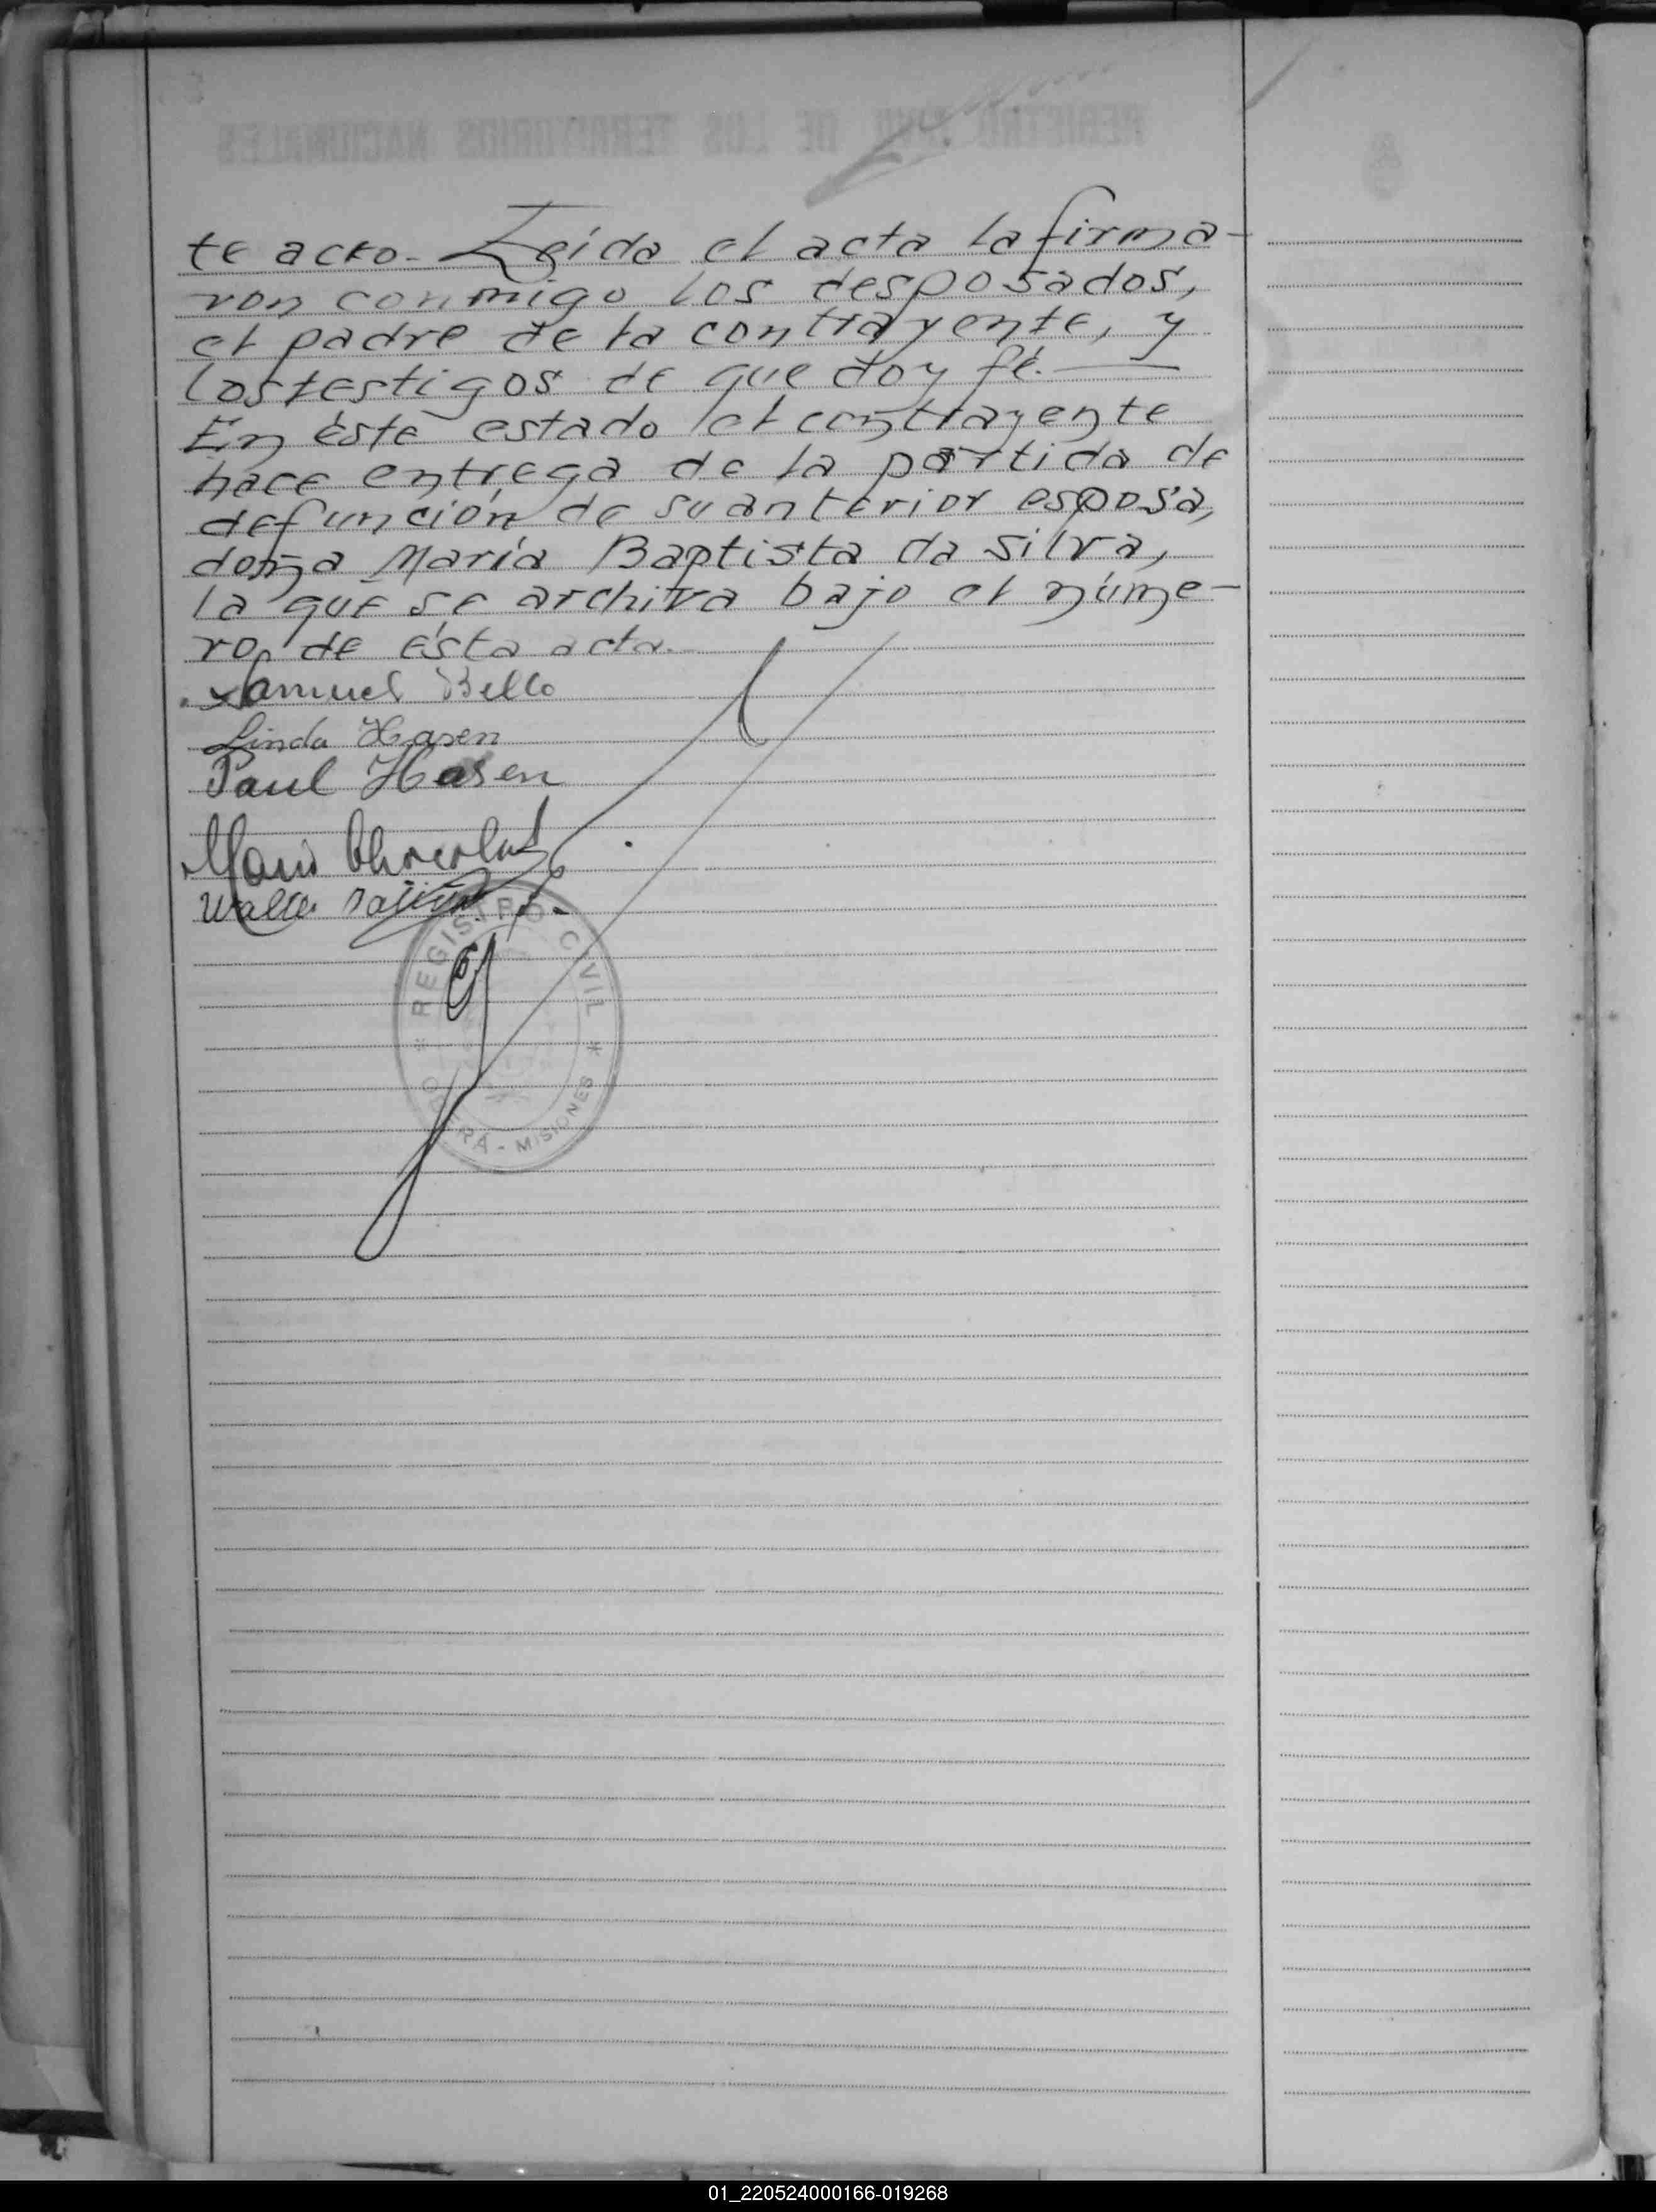 te acto. Leída el acta la firma-
ron conmigo los desposados,
el padre de la contrayente, y
los testigos de que doy fé.
En éste estado el contrayente
hace entrega de la partida de
defunción de su anterior esposa,
doña María Baptista da Silva,
la que se archiva bajo el núme-
ro de ésta acta.
Samuel Bello
Linda Hasen
Paul Hasen
REGISTRO CIVIL
MISIONES
01_220524000166-019268